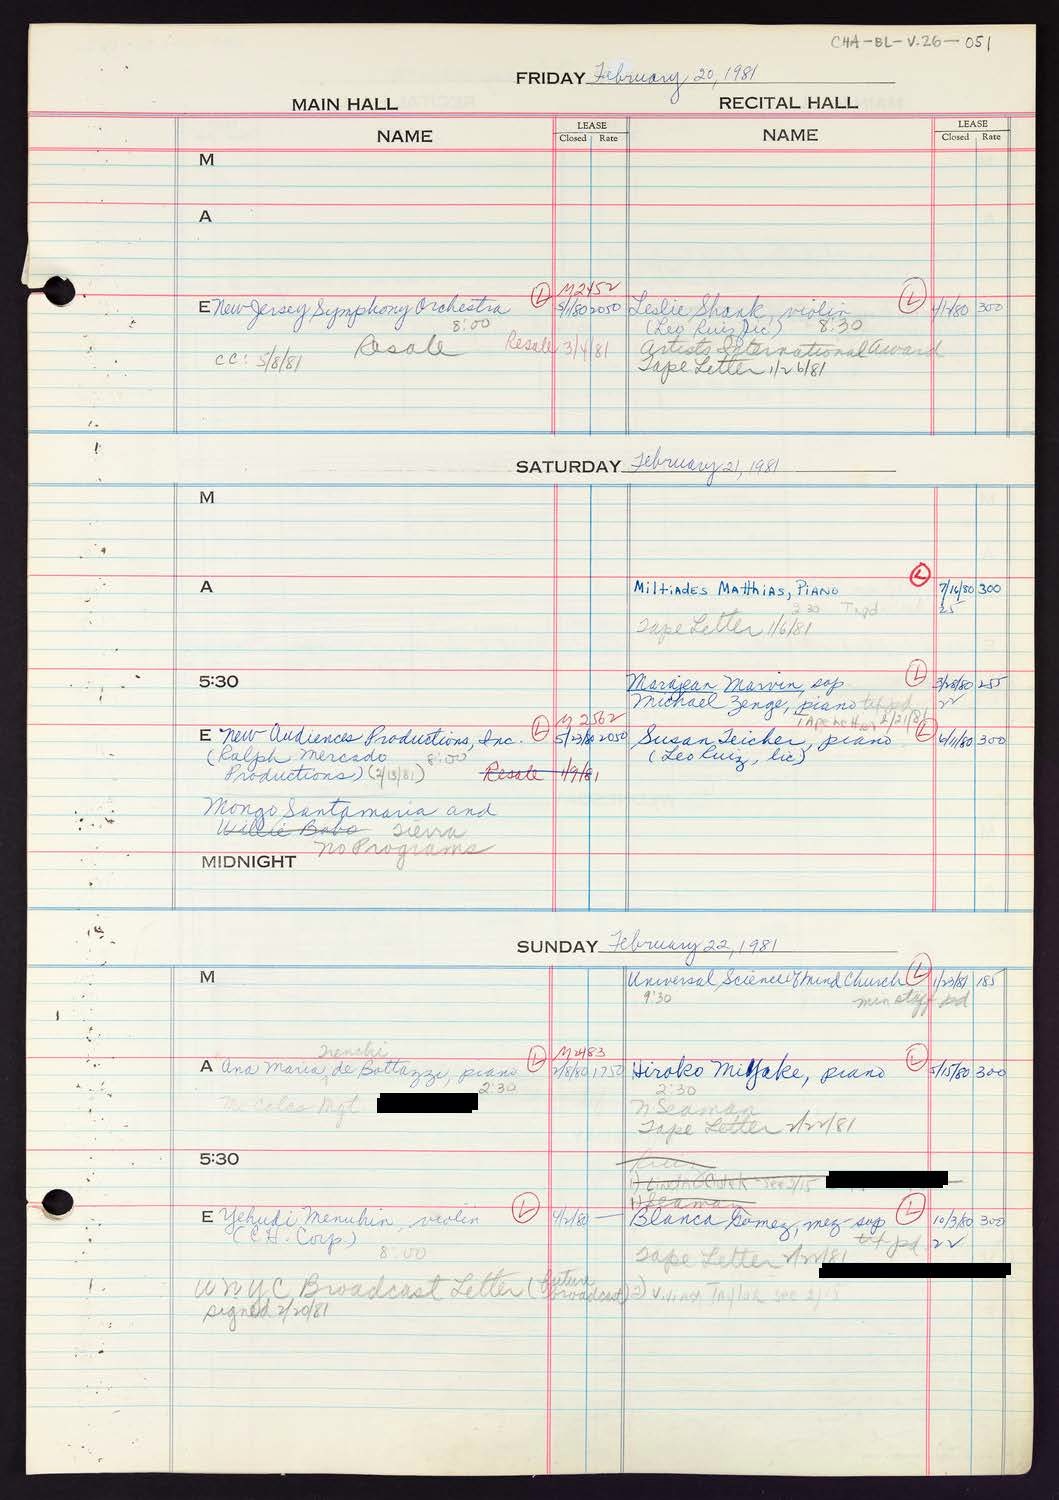 CHA-BL-V.26-051
FRIDAY February 20, 1981
MAIN HALL
RECITAL HALL
NAME
LEASE
Closed Rate
NAME
LEASE
Closed Rate
M
A
M2452
E New Jersey Symphony Orchestra L 5/1/80 2050
8:00
Resale Resale 3/4/81
cc: 5/8/81
Leslie Shank, violin L 4/1/80 300
(Leo Ruiz, lic) 8:30
Artists International Award
Tape Letter 1/26/81
SATURDAY February 21, 1981
M
A
Miltiades Matthias, Piano L 7/16/80 300
2:30 25
Tape Letter 1/6/81
5:30
Marajean Marvin, sop L 3/28/80 255
Michael Zenge, piano 22
Tape Letter 2/21/81
M 2562
E New Audiences Productions, Inc. L 5/23/80 2050
(Ralph Mercado 8:00
Productions) (2/13/81) Resale 1/9/81
Mongo Santamaria and
Willie Bobo Sierra
No Programs
Susan Teicher, piano L 6/11/80 300
(Leo Ruiz, lic)
MIDNIGHT
SUNDAY February 22, 1981
M
Universal Science of Mind Church L 1/23/81 185
9:30 min staff pd
M2483
Trenchi
A Ana Maria de Bottazzi, piano L 2/8/80 1750
2:30
Mgt
Hiroko Miyake, piano L 5/15/80 300
2:30
N Seaman
Tape Letter 2/22/81
5:30
see 3/15
E Yehudi Menuhin, violin L 4/2/80 —
(C.H. Corp.)
8:00
WNYC Broadcast Letter (future
broadcast)
signed 2/20/81
Blanca Gomez, mez-sop L 10/3/80 300
pd. 22
Tape Letter 2/22/81
2) Vivian Taylor see 2/15